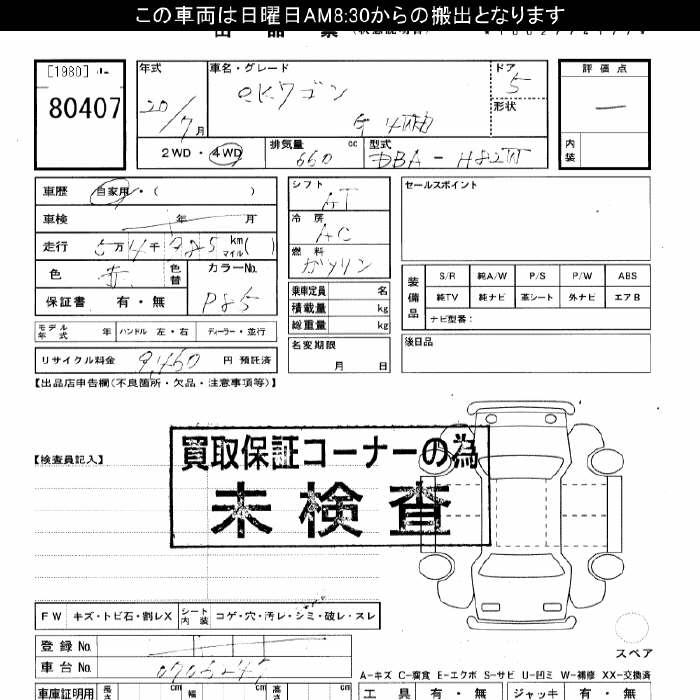 この車両は日曜日AM8:30からの搬出となります
[1980]
80407
年式
20/7月
車名・グレード
eKワゴン
G 4WD
ドア
5
形状
評価点
—
内装
2WD・4WD
排気量
660
cc
型式
DBA-H82W
車歴
自家用・(　　　)
シフト
AT
セールスポイント
車検
年　月
冷房
AC
走行
5万4千985km
マイル(　)
燃料
ガソリン
色
赤
色替
カラーNo.
P85
装備品
S/R
純A/W
P/S
P/W
ABS
純TV
純ナビ
革シート
外ナビ
エアB
ナビ型番:
保証書　有・無
乗車定員　名
積載量　kg
総重量　kg
モデル年式　年
ハンドル　左・右
ディーラー・並行
名変期限
月　日
後日品
リサイクル料金　9,460　円 預託済
【出品店申告欄(不良箇所・欠品・注意事項等)】
買取保証コーナーの為
未検査
【検査員記入】
FW　キズ・トビ石・割レX
シート内装
コゲ・穴・汚レ・シミ・破レ・スレ
登録No.
車台No.
スペア
A-キズ C-腐食 E-エクボ S-サビ U-凹ミ W-補修 XX-交換済
車庫証明用
長さ
cm
幅
cm
高さ
cm
工具　有・無
ジャッキ　有・無